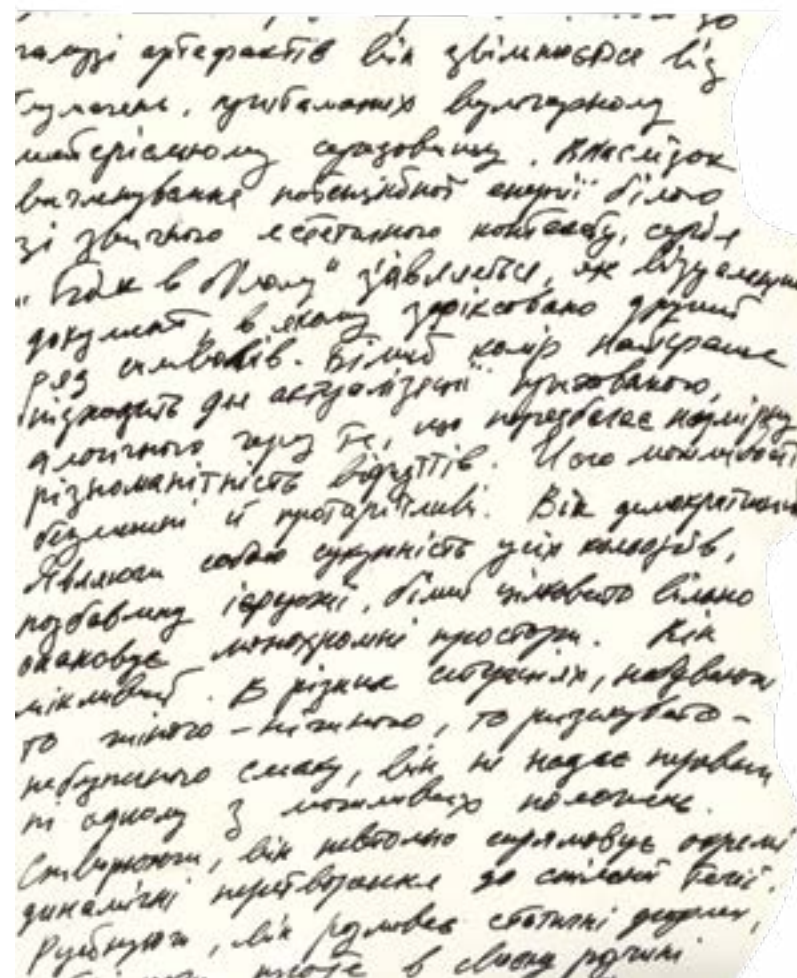 галузі артефактів він звільнюється від
тлумачень, притаманних вульгарному
матеріальному середовищу. Внаслідок
вичленування потенційної енергії білого
зі звичного естетичного контексту, серія
"Білк в білому" з'являється, як візуальний
документ, в якому зафіксовано другий
ряд символів. Білий колір найкраще
підходить для актуалізації прихованого,
алогічного через те, що передбачає надмірну
різноманітність відчуттів. Його можливості
безмежні й протирітливі. Він демократичний
Являючи собою сукупність усіх кольорів,
позбавлену ієрархії, білий цілковито вільно
опановує монохромні простори. Він
мінливий. В різних ситуаціях, набуваючи
то живого – ніжного, то ризикувато –
небуденного смаку, він не надає переваги
ні одному з можливих положень.
Створюючи, він невтомно спрямовує окремі
динамічні перетворення до спільної течії.
Руйнуючи, він розмиває статичні форми,
в своїй розчині